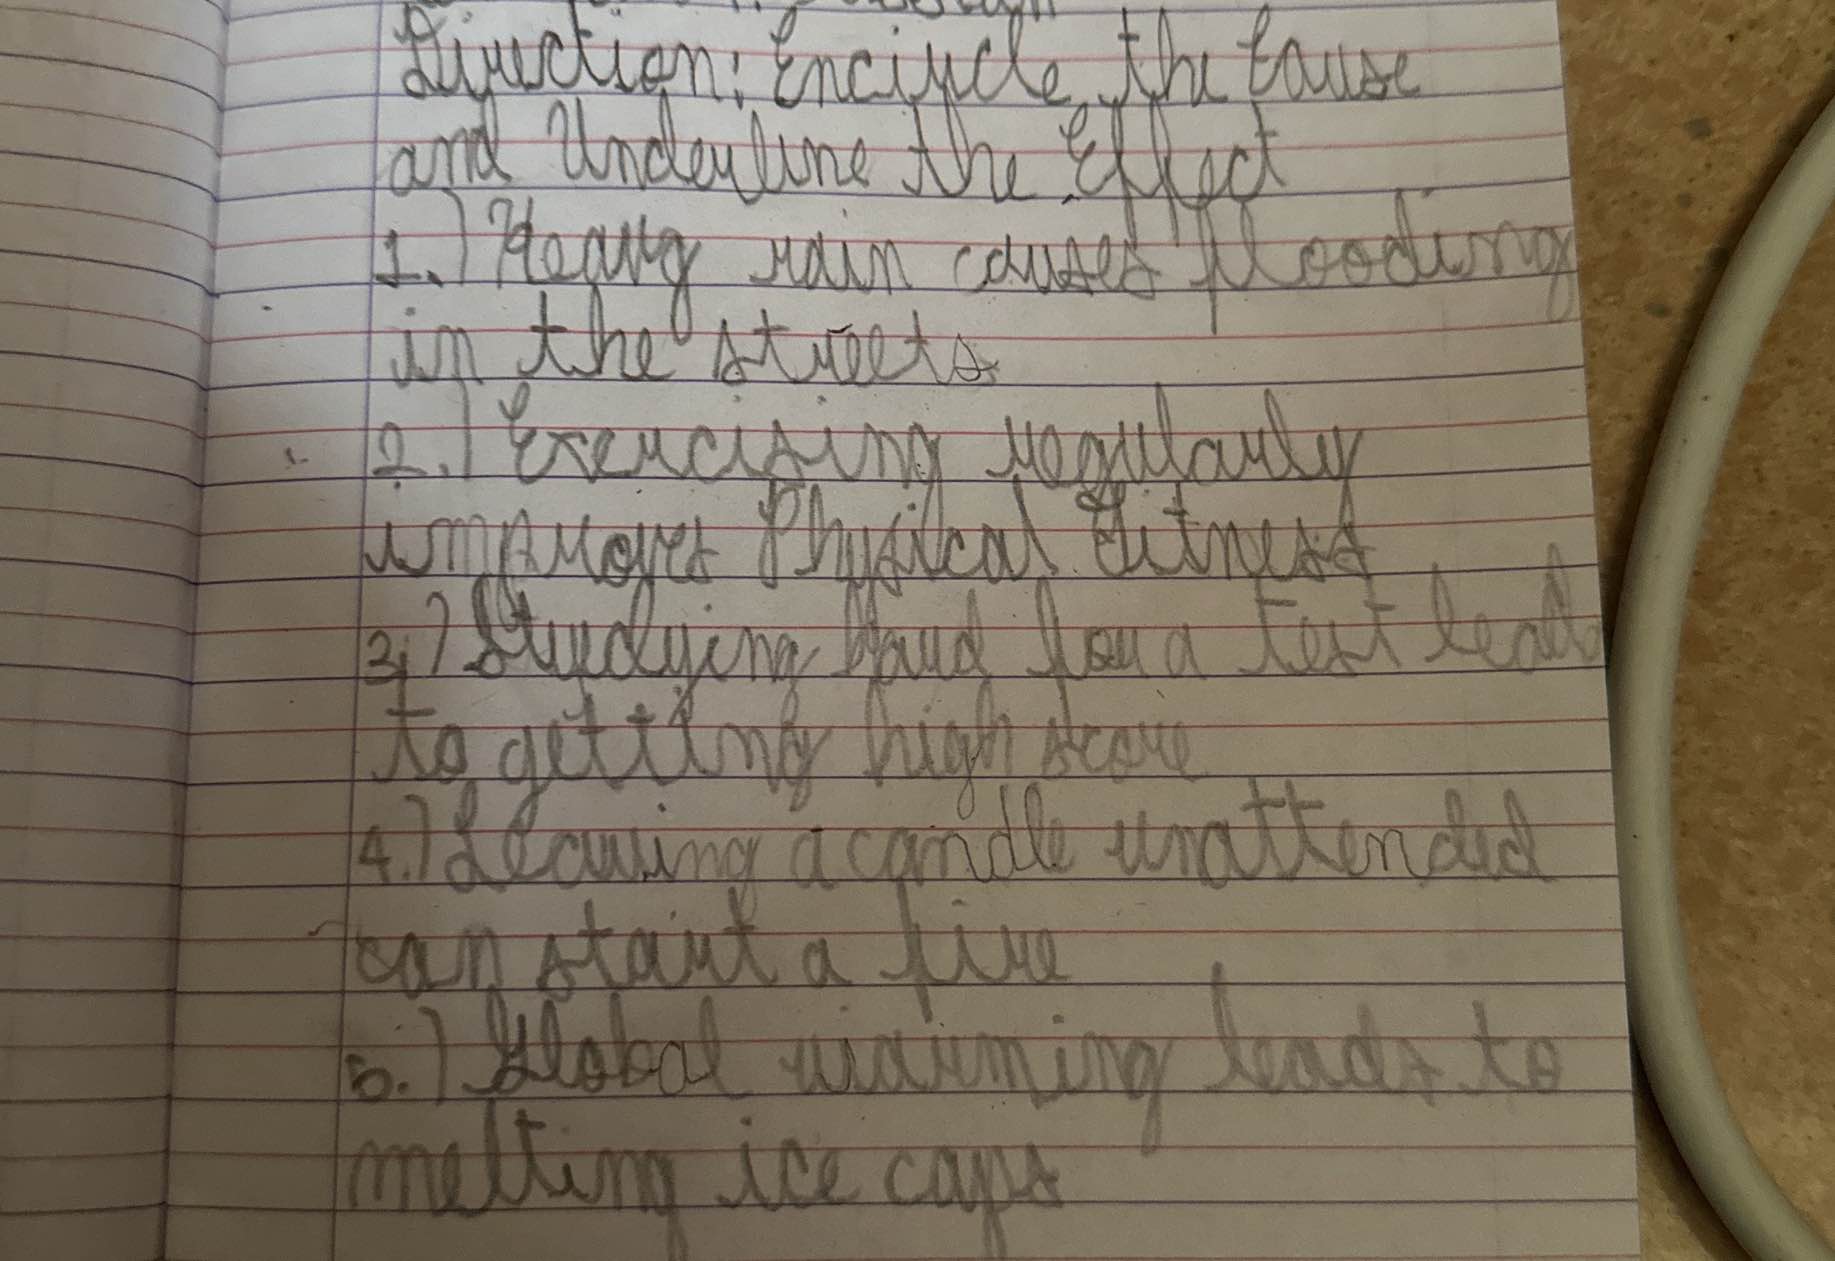 Direction: Encircle the Cause
and Underline the Effect
1.) Heavy rain causes flooding
in the streets
2.) Exercising regularly
improves Physical Fitness
3.) Studying Hard for a test leads
to getting high score
4.) Leaving a candle unattended
can start a fire
5.) Global warming leads to
melting ice caps